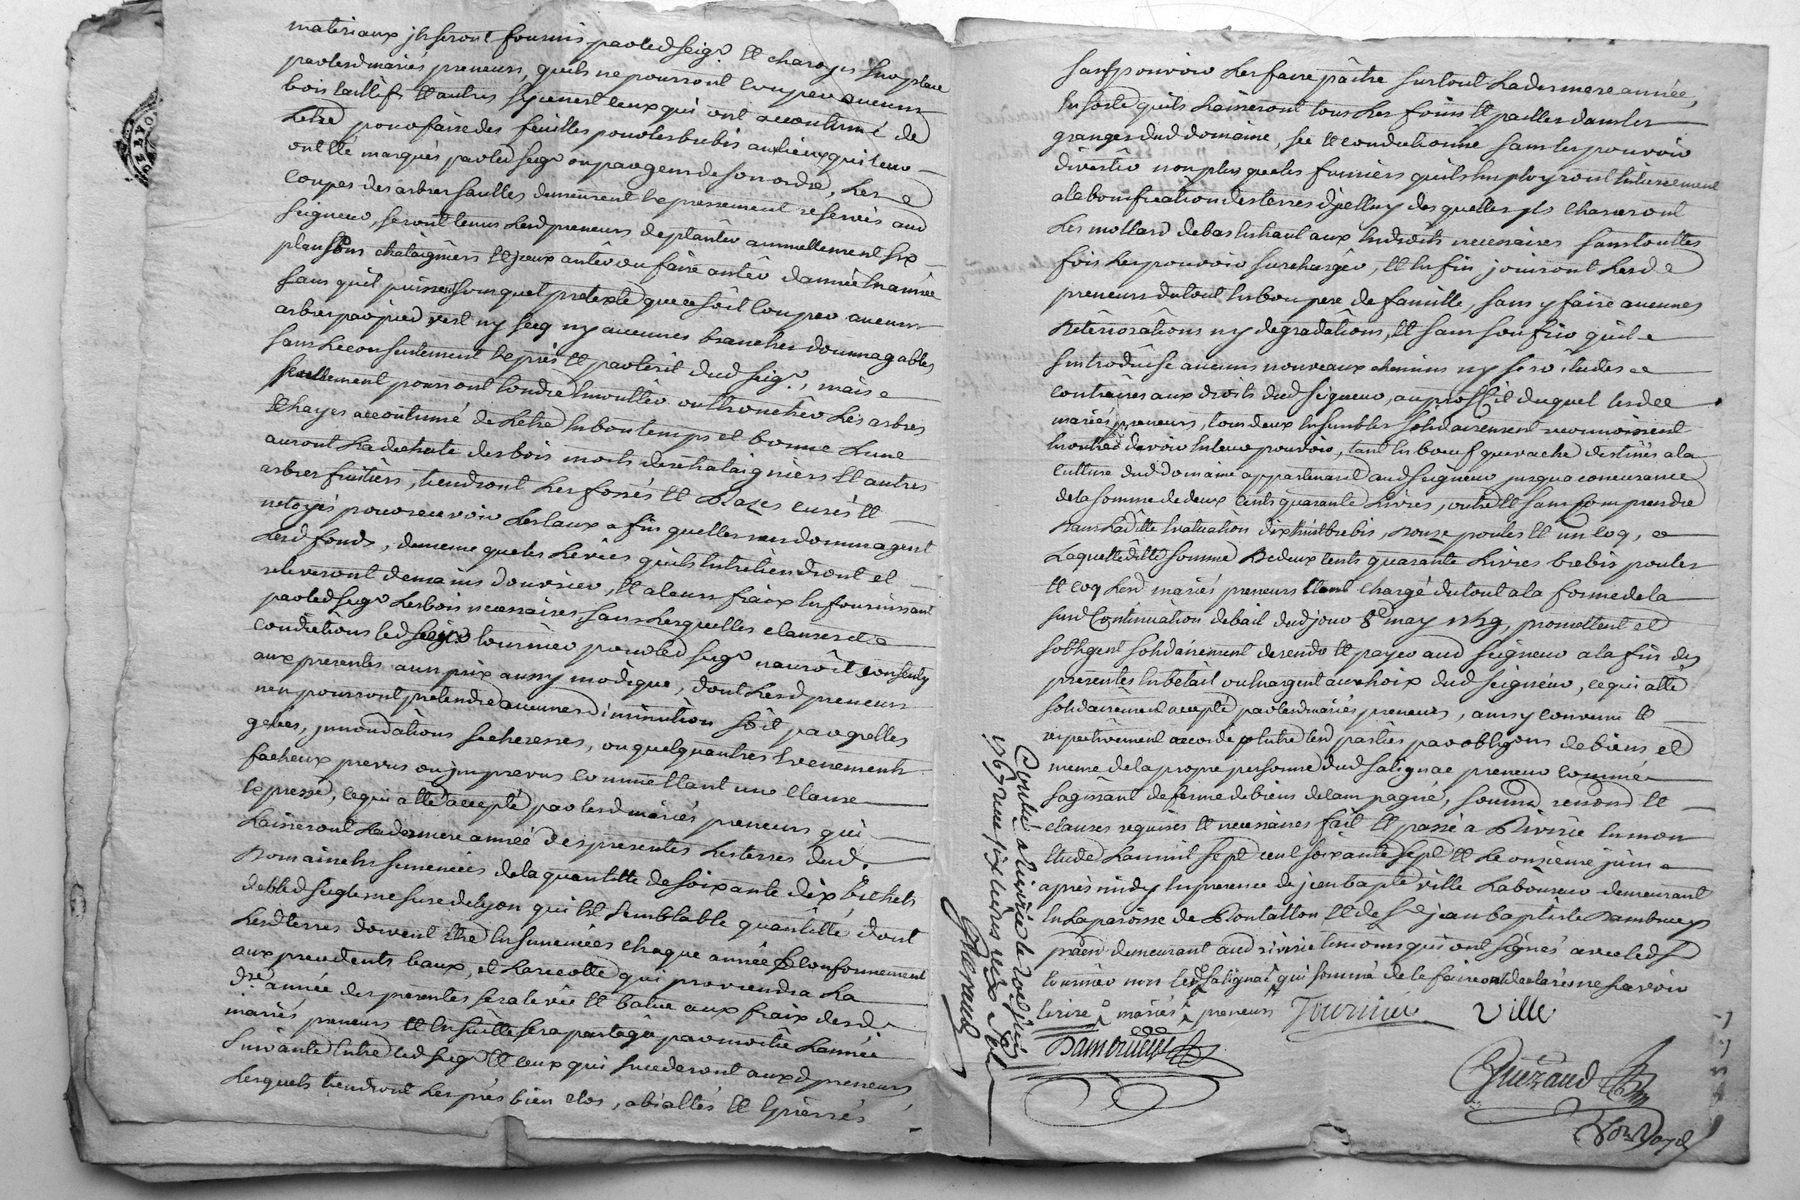 materiaux jls seront fournis par led seigr. et charoyés sur place
par lesd mariés preneurs, quils ne pourront couper aucuns
bois taillif et autres sy ce nest ceux qui ont accoutumé de
letre pour faire des feuilles pour les brebis aux lieux qui leur
ont été marqués par led seigr ou par gens de son ordre, les
coupes des arbres saulles demeurent expressement reservés aud
seigneur, seront tenus lesd preneurs de planter annuellement six
plansons chataigniers et jceux anter ou faire anter dannée en année
sans quil puissent sous quel pretexte que ce soit couper aucuns
arbres par pied vert ny secq ny aucunes branches dommagables
sans le consentement exprès et par ecrit dud seigr, mais
seullement pourront tondre emoutter ou troncher les arbres
et hayes accoutumé de letre en bon temps et bonne lune
auront la dechute des bois morts des chataigniers et autres
arbres fruitiers, tiendront les fossés et razes curés et
netoyés pour recevoir les eaux afin quelles nendommagent
lesd fonds, de meme que les levées quils entretiendront et
releveront de mains douvrier, et a leurs fraix en fournissant
par led seigr les bois necessaires sans lesquelles clauses et
conditions led seigr tournier pour led seigr nauroit consenty
aux presentes a un prix aussy modique, dont lesd preneurs
nen pourront pretendre aucunes diminution soit par grelles
gelées, jnnondations secheresses, ou quelquautres evenements
facheux prevus ou jmprevus commettant une clause
expresse, ce qui a été accepté par lesd mariés preneurs qui
laisseront la dernière année des presentes les terres dud
domaine ensemencées de la quantitté de soixante dix bichets
de bled seigle mesure de lyon qui est semblable quantitté dont
lesd terres doivent etre ensemencées chaque année conformement
aux precedents baux, et la recolte qui proviendra la
dre année des presentes sera levée et batue aux fraix desd
mariés preneurs et ensuitte sera partagée par moitié lannée
suivante entre led seigr et ceux qui succederont auxd preneurs,
lesquels tiendront les prés bien clos, abialtés et epierrés
sans pouvoir les faire paitre surtout la derniere année,
en sorte quils laisseront tous les foins et pailles dans les
granges dud domaine, sec et conditionné sans les pouvoir
divertir non plus que les fumiers quils employront entierement
a la bonification des terres djcelluy desquelles jls chareront
les mollard de bas en haut aux endroits necessaires sans touttes
fois les pouvoir surcharger, et enfin jouiront lesd
preneurs du tout en bon pere de famille, sans y faire aucunes
deteriorations ny degradations, et sans souffrir quil
sintroduise aucuns nouveaux chemins ny servitudes
contraires aux droits dud seigneur, au proffit duquel lesd
mariés preneurs, tous deux ensembles solidairement reconnoissent
en outre davoir en leur pouvoir, tant en bœuf que vache destinés a la
culture dud domaine appartenant aud seigneur jusqua concurance
de la somme de deux cents quarante livres, outre et sans comprendre
dans laditte evaluation dix huit brebis, douze poules et un coq,
laquelle ditte somme de deux cents quarante livres brebis poules
et coq lesd mariés preneurs etant chargé du tout a la forme de la
susd Continuation de bail dud jour 8e may 1759, promettent et
sobligent solidairement de rendre et payer aud seigneur a la fin des
presentes en betail ou en argent au choix dud seigneur, ce qui a été
solidairement accepté par lesd mariés preneurs, aussy convenu et
respectivement accordé entre lesd parties par obligons de biens et
meme de la propre personne dud salignat preneur comme
sagissant de ferme de biens de campagne, soumon renond et
clauses requises et necessaires fait et passé a Riverie en mon
etude lan mil sept cent soixante sept et le onsieme juin
après midy en presence de jean bapte ville laboureur demeurant
en la paroisse de Pontatton et de sr jean baptiste Dambuez
praen demeurant aud riverie temoins qui ont signés avec led sr
tournier non led salignat qui sommé de le faire ont declarés ne savoir
ecrire mariés preneurs Tournier Ville
Guerand
Controlé a Riverie le dord juin
1767 reçu six livres
Guerand